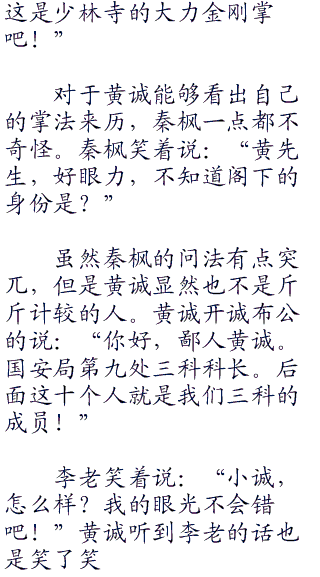 这是少林寺的大力金刚掌
吧！”
对于黄诚能够看出自己
的掌法来历，秦枫一点都不
奇怪。秦枫笑着说：“黄先
生，好眼力，不知道阁下的
身份是？”
虽然秦枫的问法有点突
兀，但是黄诚显然也不是斤
斤计较的人。黄诚开诚布公
的说：“你好，鄙人黄诚。
国安局第九处三科科长。后
面这十个人就是我们三科的
成员！”
李老笑着说：“小诚，
怎么样？我的眼光不会错
吧！”黄诚听到李老的话也
是笑了笑